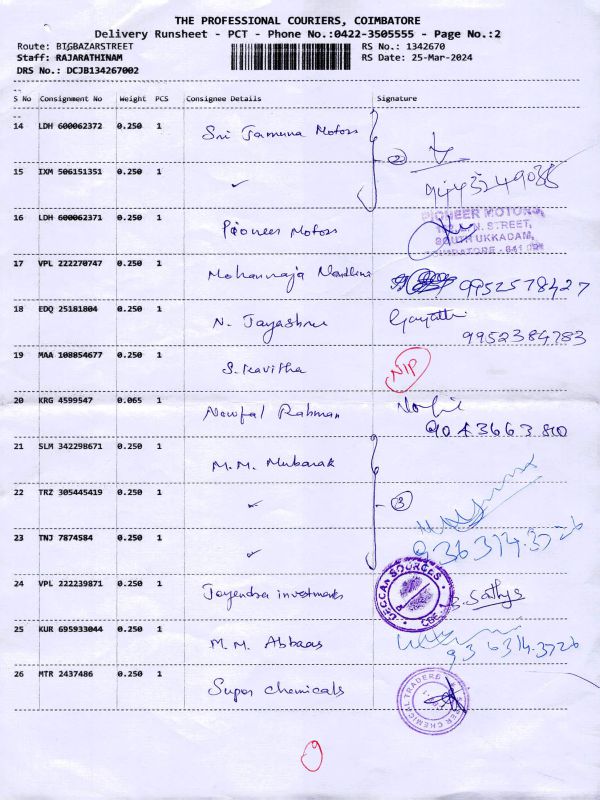 THE PROFESSIONAL COURIERS, COIMBATORE
Delivery Runsheet - PCT - Phone No.:0422-3505555 - Page No.:2
Route: BIGBAZARSTREET RS No.: 1342670
Staff: RAJARATHINAM RS Date: 25-Mar-2024
DRS No.: DCJB134267002
S No Consignment No Weight PCS Consignee Details Signature
14 LDH 600062372 0.250 1 Sri Jamuna Motors
15 IXM 506151351 0.250 1 ✓ 2
16 LDH 600062371 0.250 1 Pioneer Motors
PIONEER MOTORS,
N. STREET,
SOUTH UKKADAM,
17 VPL 222270747 0.250 1 Mohanraja 9952578427
18 EDQ 25181804 0.250 1 N. Jayashree Gayathri
9952384783
19 MAA 108854677 0.250 1 S. Kavitha NIP
20 KRG 4599547 0.065 1 Nowfal Rahman
21 SLM 342298671 0.250 1 M.M. Mubarak
22 TRZ 305445419 0.250 1 ✓ 3
23 TNJ 7874584 0.250 1 ✓ 936314.3726
24 VPL 222239871 0.250 1 Jayendra investments DECCAN SOURCES CBE-1 B. Sathya
25 KUR 695933044 0.250 1 M.M. Abbaas 936314.3726
26 MTR 2437486 0.250 1 Super chemicals
9